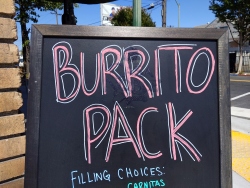 BURRITO
PACK
FILLING CHOICES:
CARNITAS